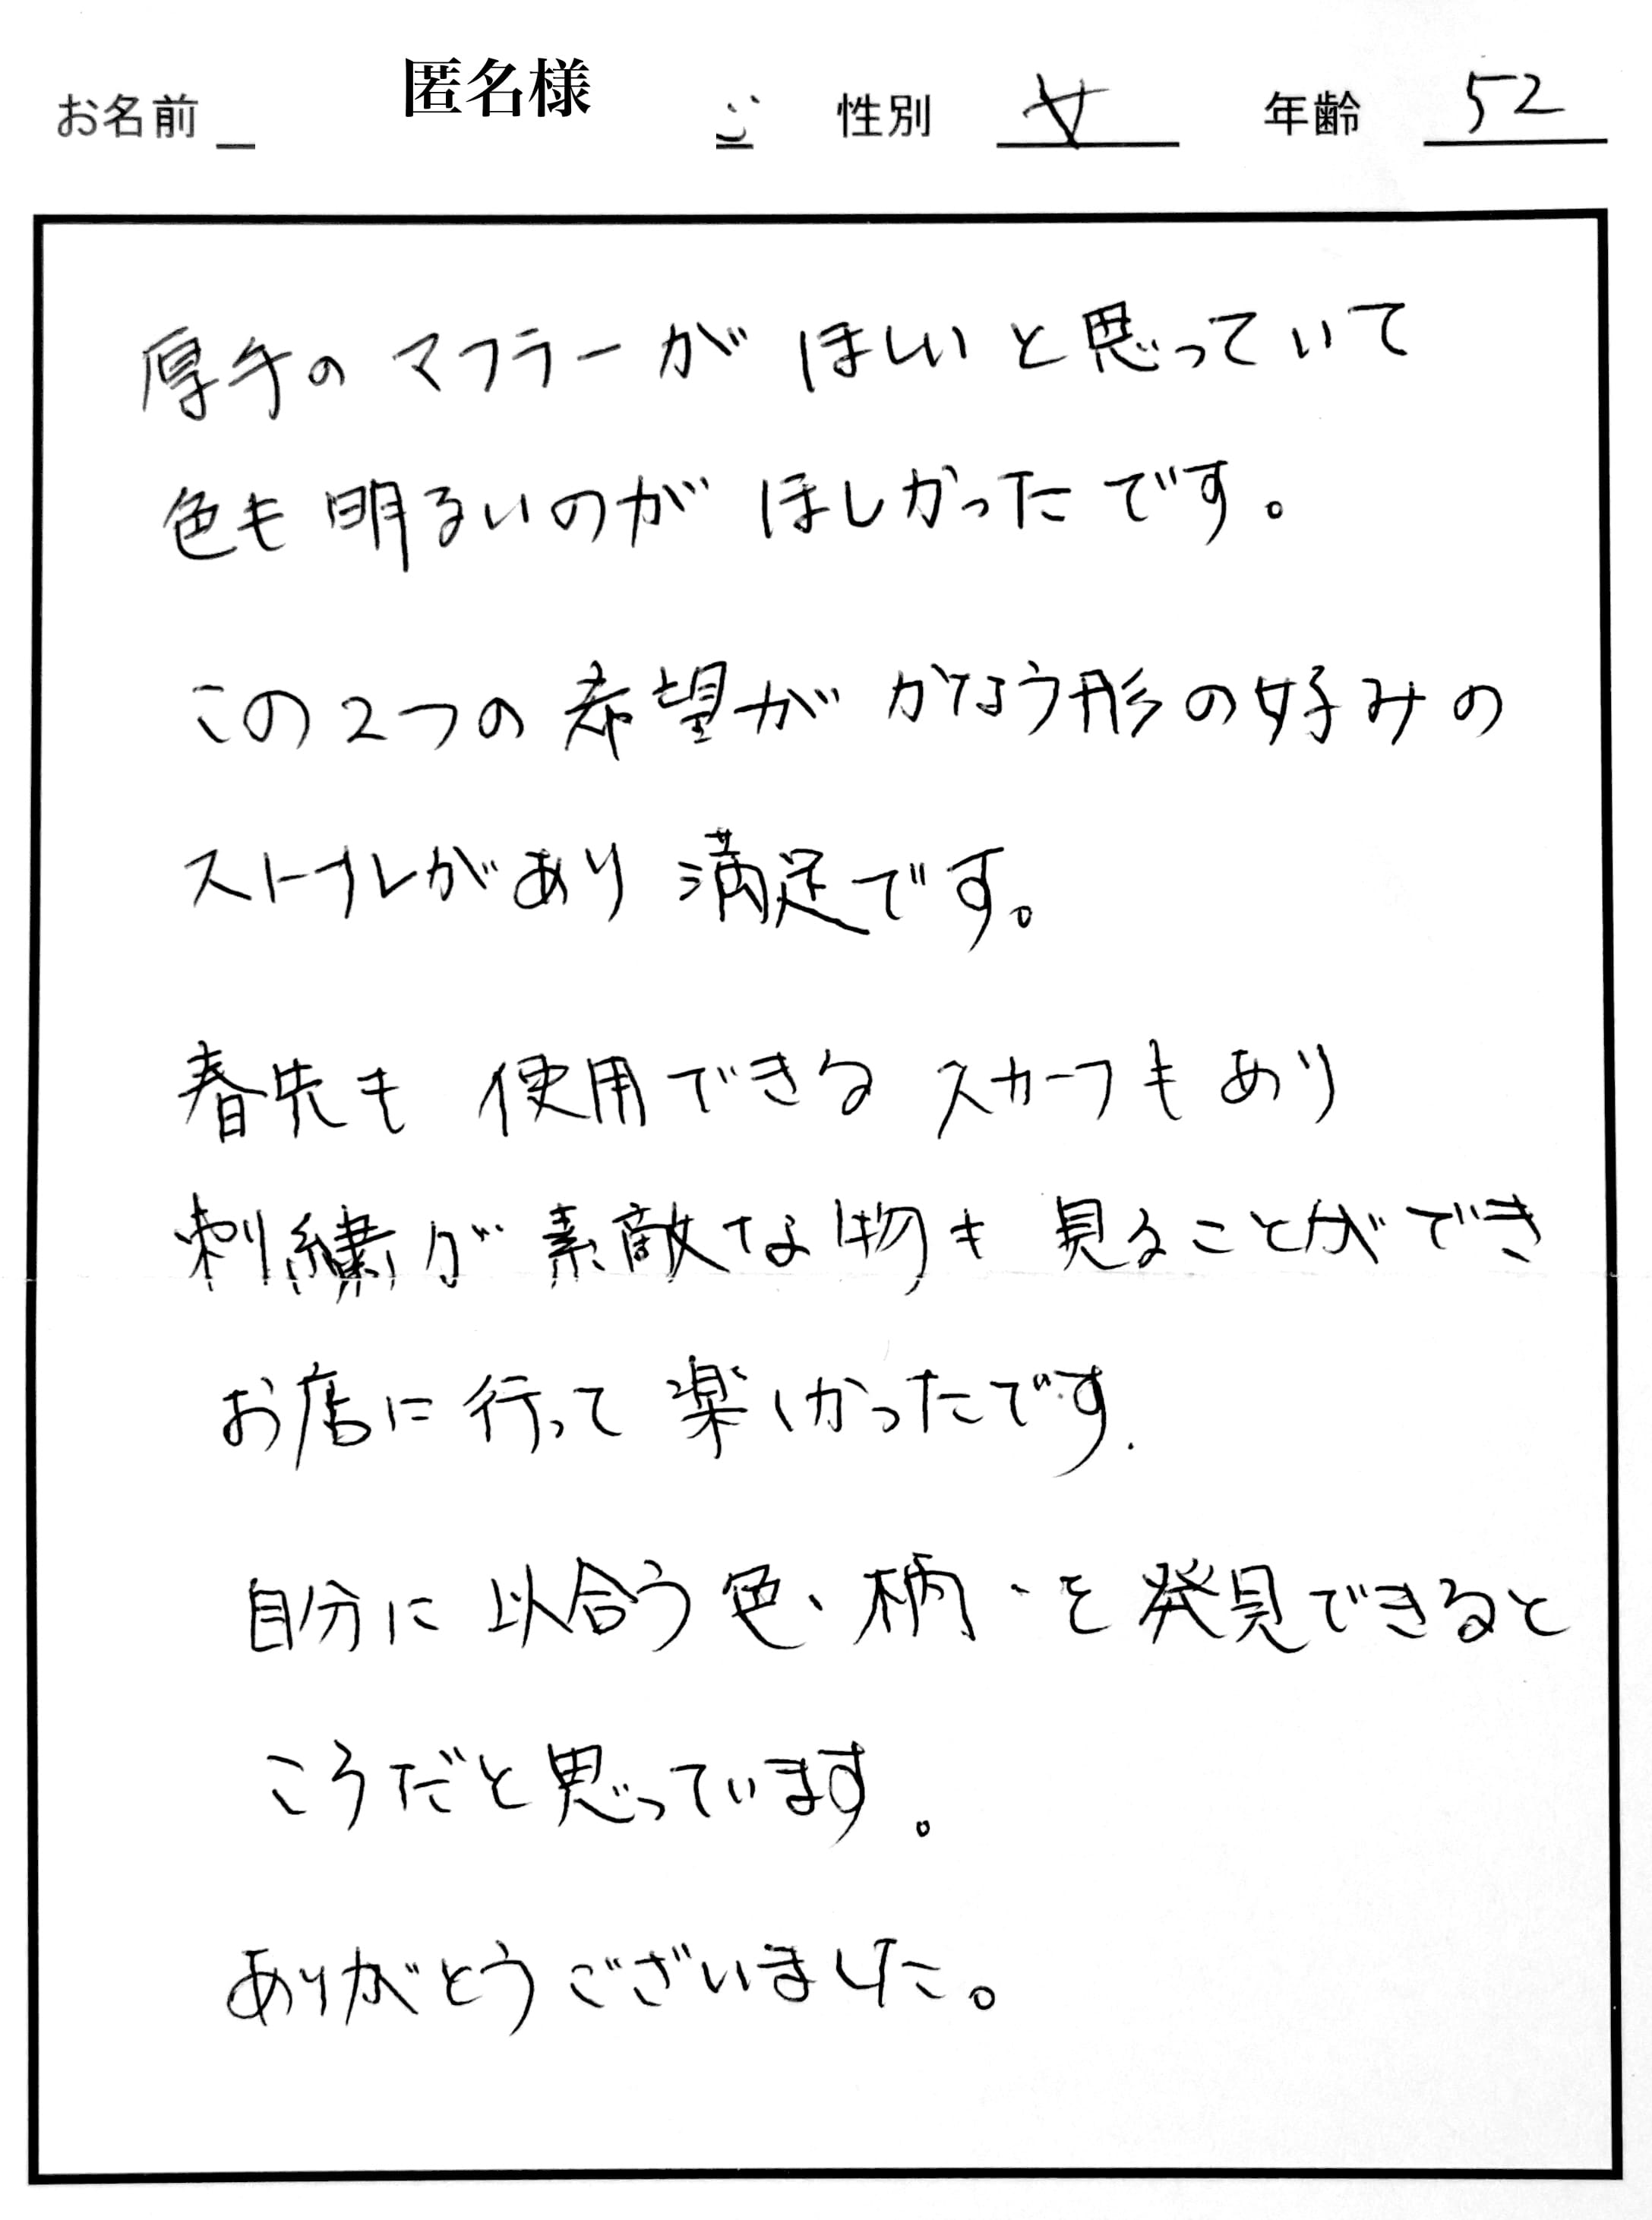 お名前 匿名様 性別 女 年齢 52
厚手のマフラーがほしいと思っていて
色も明るいのがほしかったです。
この2つの希望がかなう形の好みの
ストールがあり満足です。
春先も使用できるスカーフもあり
刺繍が素敵な物も見ることができ
お店に行って楽しかったです.
自分に似合う色、柄、を発見できると
ころだと思っています。
ありがとうございました。